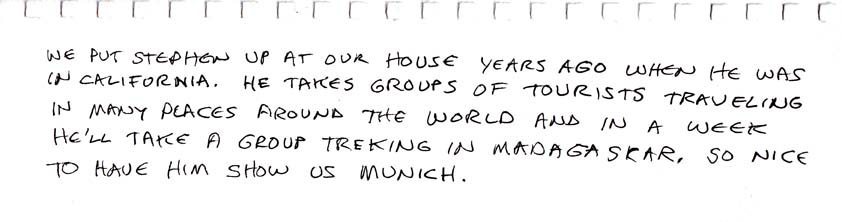 WE PUT STEPHEN UP AT OUR HOUSE YEARS AGO WHEN HE WAS
IN CALIFORNIA. HE TAKES GROUPS OF TOURISTS TRAVELING
IN MANY PLACES AROUND THE WORLD AND IN A WEEK
HE'LL TAKE A GROUP TREKING IN MADAGASKAR. SO NICE
TO HAVE HIM SHOW US MUNICH.